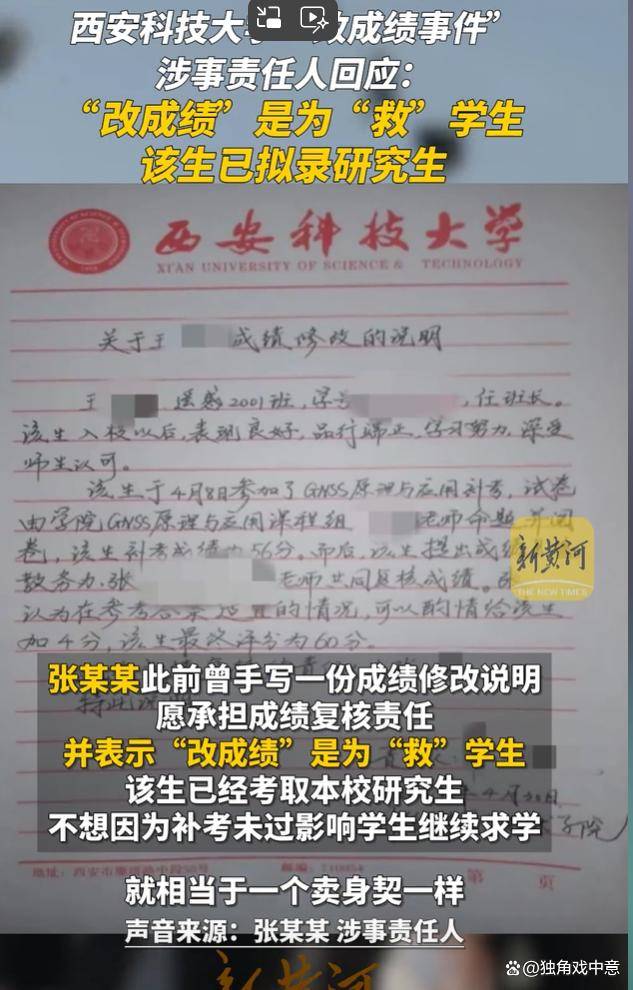 西安科技大学“改成绩事件”
涉事责任人回应：
“改成绩”是为“救”学生
该生已拟录研究生
西安科技大学
XI'AN UNIVERSITY OF SCIENCE & TECHNOLOGY
关于王 成绩修改的说明
王 遥感2001班，学号 ，任班长。
该生入校以后，表现良好，品行端正，学习努力，深受
师生认可。
该生于4月8日参加了GNSS原理与应用补考，试卷
由学院GNSS原理与应用课程组 老师命题并阅
卷，该生补考成绩为56分。而后，该生提出成绩
教务办，张 老师共同复核成绩。
认为在参考答案 的情况，可以酌情给该生
加4分，该生最终评分为60分。
新黄河
THE NEW TIMES
张某某此前曾手写一份成绩修改说明
愿承担成绩复核责任
并表示“改成绩”是为“救”学生
该生已经考取本校研究生
年4月30日
不想因为补考未过影响学生继续求学
学院
地址：西安市雁塔路中段58号 邮编：710054 第 页
就相当于一个卖身契一样
声音来源：张某某 涉事责任人
新黄河
@独角戏中意